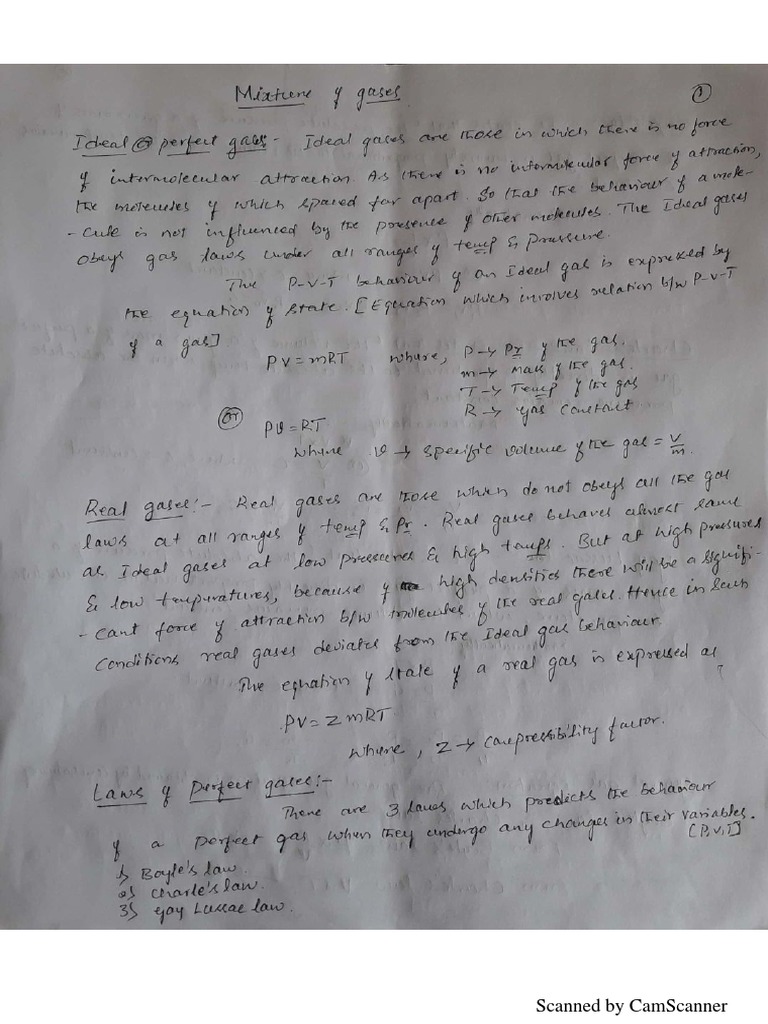 Mixture of gases. 1
Ideal or perfect gases - Ideal gases are those in which there is no force
of intermolecular attraction. As there is no intermolecular force of attraction,
the molecules of which spaced far apart. So that the behaviour of a mole-
- cule is not influenced by the presence of other molecules. The Ideal gases
obeys gas laws under all ranges of temp & pressure.
The P-V-T behaviour of an Ideal gas is expressed by
the equation of state. [Equation which involves relation b/w P-V-T
of a gas]
PV = mRT where, P → Pr of the gas.
m → mass of the gas.
T → Temp of the gas
R → gas constant.
or Pv = RT
where v → specific volume of the gas = V/m.
Real gases:- Real gases are those which do not obeys all the gas
laws at all ranges of temp & Pr. Real gases behaves almost same
as Ideal gases at low pressures & high temps. But at high pressures
& low temperatures, because of high densities there will be a signifi-
- cant force of attraction b/w molecules of the real gases. Hence in such
conditions real gases deviates from the Ideal gas behaviour.
The equation of state of a real gas is expressed as
PV = Z mRT
where, Z → compressibility factor.
Laws of Perfect gases:-
There are 3 laws which predicts the behaviour
of a perfect gas when they undergo any changes in their variables.
[P,V,T]
1) Boyle's law.
2) Charle's law.
3) Gay Lussac law.
Scanned by CamScanner